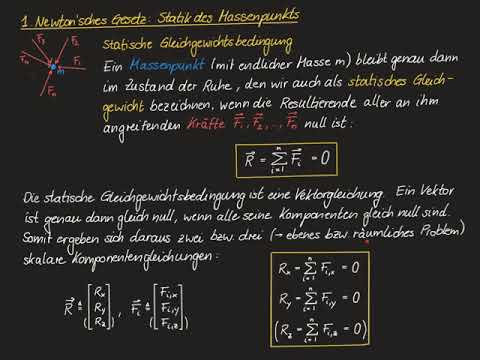 1. Newton'sches Gesetz: Statik des Massenpunkts
F⃗₃ F⃗₂ F⃗ₙ m F⃗₁ F⃗ᵢ
Statische Gleichgewichtsbedingung
Ein Massenpunkt (mit endlicher Masse m) bleibt genau dann
im Zustand der Ruhe, den wir auch als statisches Gleich-
gewicht bezeichnen, wenn die Resultierende aller an ihm
angreifenden Kräfte F⃗₁, F⃗₂, .., F⃗ₙ null ist:
R⃗ = ∑ᵢ₌₁ⁿ F⃗ᵢ = 0
Die statische Gleichgewichtsbedingung ist eine Vektorgleichung. Ein Vektor
ist genau dann gleich null, wenn alle seine Komponenten gleich null sind.
Somit ergeben sich daraus zwei bzw. drei (→ ebenes bzw. räumliches Problem)
skalare Komponentengleichungen:
R⃗ ≙ [Rx Ry (Rz)], F⃗ᵢ ≙ [Fi,x Fi,y (Fi,z)]
Rx = ∑ᵢ₌₁ⁿ Fi,x = 0
Ry = ∑ᵢ₌₁ⁿ Fi,y = 0
(Rz = ∑ᵢ₌₁ⁿ Fi,z = 0)